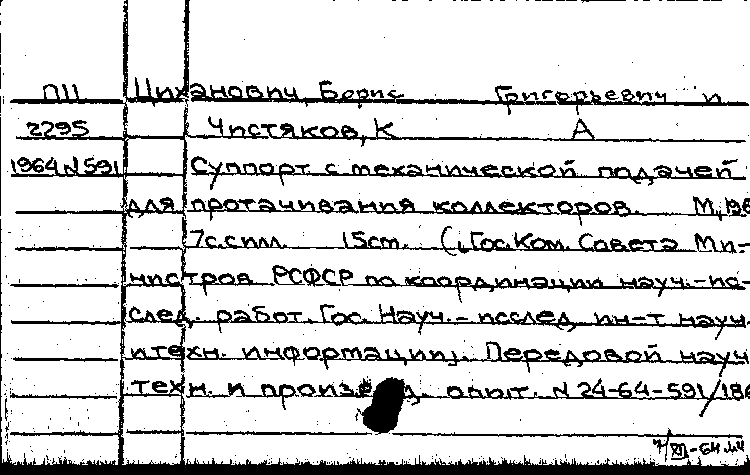 ПII Циханович, Борис Григорьевич и
2295 Чистяков, К А
1964 N 591 Суппорт с механической подачей
для протачивания коллекторов. М, 196
7с. с илл. 15см. (Гос. Ком. Совета Ми-
нистров РСФСР по координации науч.-ис-
след. работ. Гос. Науч.-исслед ин-т науч.
и техн. информации). Передовой науч
техн. и опыт. N 24-64-591/186
7/XII-64